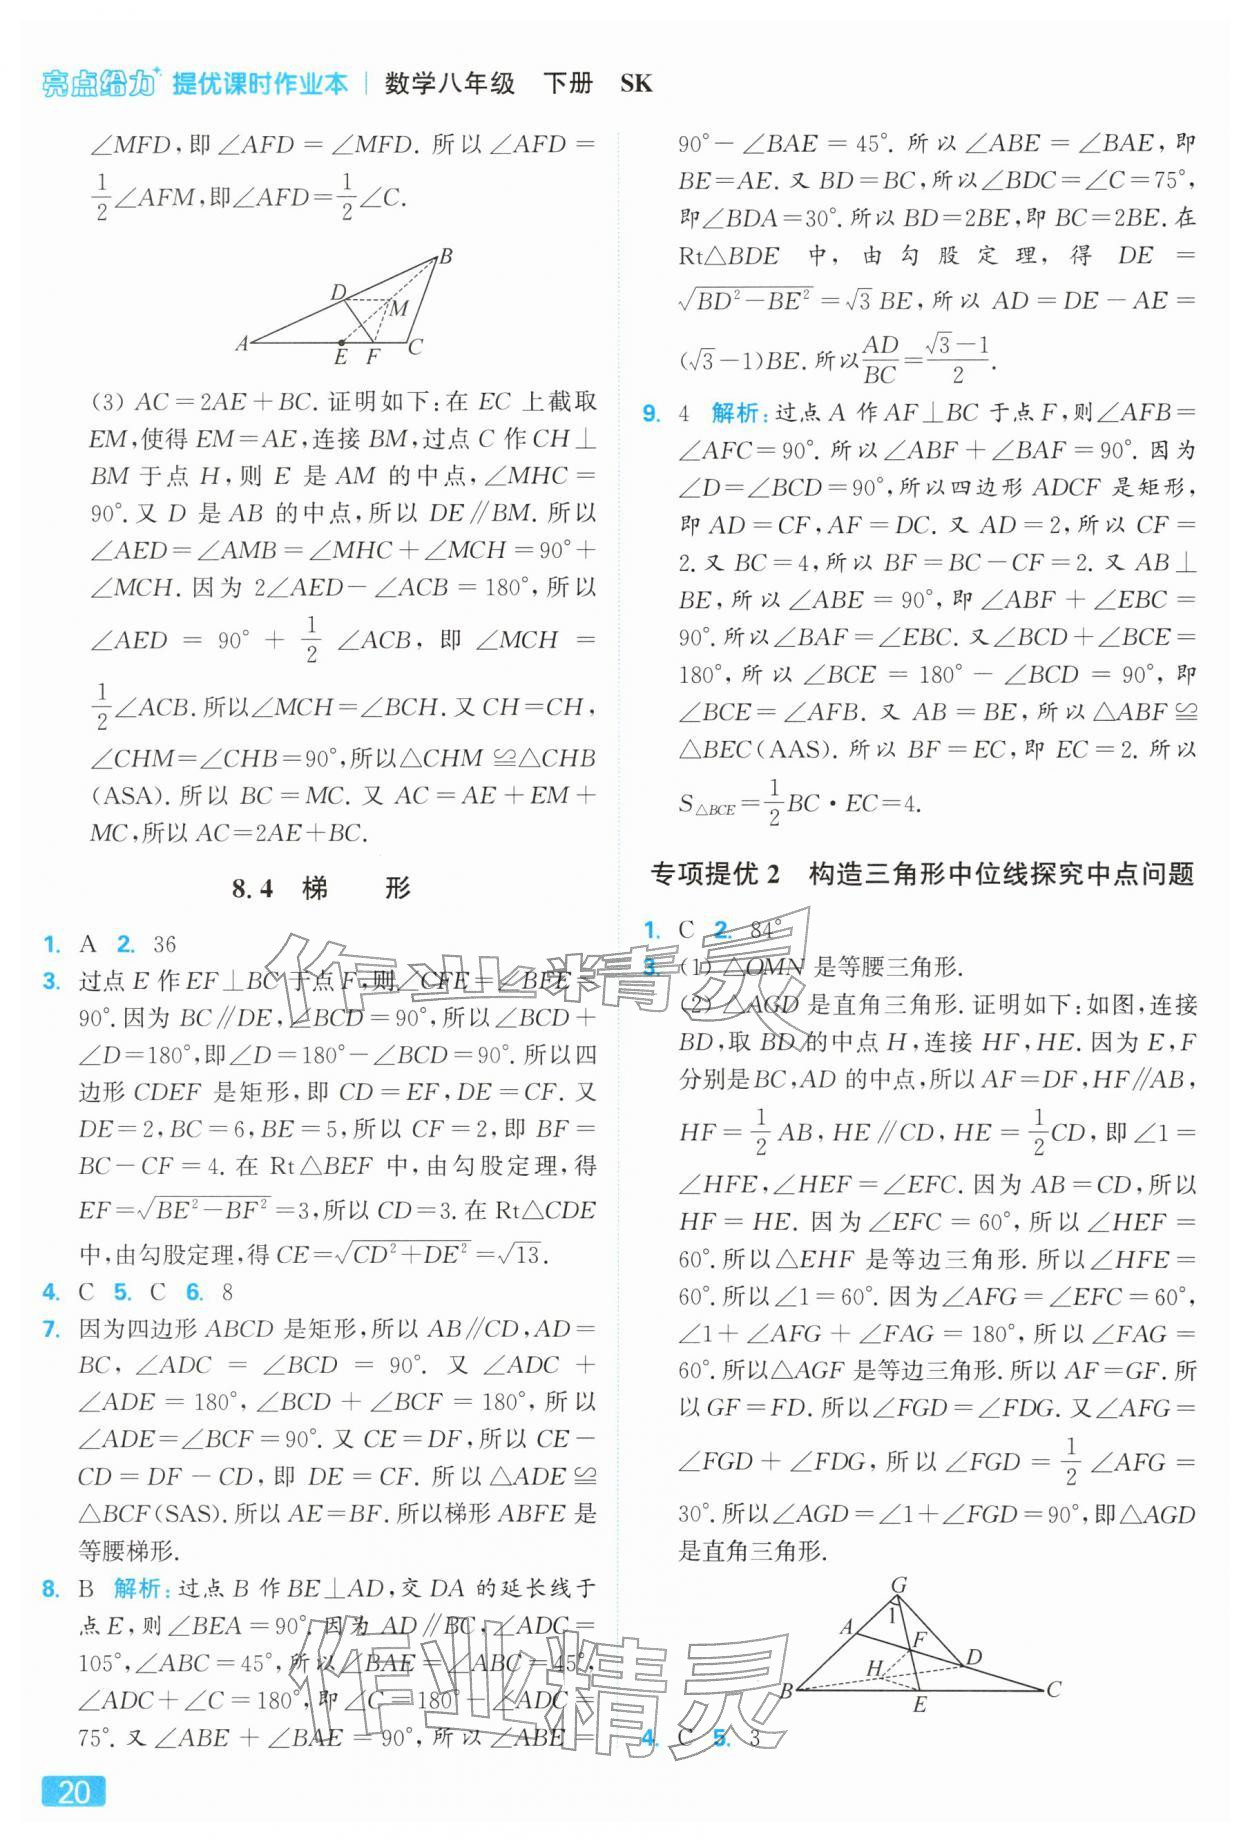 亮点给力 提优课时作业本 | 数学八年级 下册 SK
∠MFD,即∠AFD=∠MFD.所以∠AFD=
1/2∠AFM,即∠AFD=1/2∠C.
B
D
M
A
E F C
(3) AC=2AE+BC.证明如下:在 EC 上截取
EM,使得 EM=AE,连接 BM,过点 C 作 CH⊥
BM 于点 H,则 E 是 AM 的中点,∠MHC=
90°.又 D 是 AB 的中点,所以 DE∥BM.所以
∠AED=∠AMB=∠MHC+∠MCH=90°+
∠MCH.因为 2∠AED-∠ACB=180°,所以
∠AED=90°+1/2∠ACB,即∠MCH=
1/2∠ACB.所以∠MCH=∠BCH.又 CH=CH,
∠CHM=∠CHB=90°,所以△CHM≌△CHB
(ASA).所以 BC=MC.又 AC=AE+EM+
MC,所以 AC=2AE+BC.
8.4 梯 形
1. A 2. 36
3. 过点 E 作 EF⊥BC 于点 F,则∠CFE=∠BFE=
90°.因为 BC∥DE,∠BCD=90°,所以∠BCD+
∠D=180°,即∠D=180°-∠BCD=90°.所以四
边形 CDEF 是矩形,即 CD=EF,DE=CF.又
DE=2,BC=6,BE=5,所以 CF=2,即 BF=
BC-CF=4.在 Rt△BEF 中,由勾股定理,得
EF=√(BE²-BF²)=3,所以 CD=3.在 Rt△CDE
中,由勾股定理,得 CE=√(CD²+DE²)=√13.
4. C 5. C 6. 8
7. 因为四边形 ABCD 是矩形,所以 AB∥CD,AD=
BC,∠ADC=∠BCD=90°.又∠ADC+
∠ADE=180°,∠BCD+∠BCF=180°,所以
∠ADE=∠BCF=90°.又 CE=DF,所以 CE-
CD=DF-CD,即 DE=CF.所以△ADE≌
△BCF(SAS).所以 AE=BF.所以梯形 ABFE 是
等腰梯形.
8. B 解析:过点 B 作 BE⊥AD,交 DA 的延长线于
点 E,则∠BEA=90°.因为 AD∥BC,∠ADC=
105°,∠ABC=45°,所以∠BAE=∠ABC=45°,
∠ADC+∠C=180°,即∠C=180°-∠ADC=
75°.又∠ABE+∠BAE=90°,所以∠ABE=
20
90°-∠BAE=45°.所以∠ABE=∠BAE,即
BE=AE.又 BD=BC,所以∠BDC=∠C=75°,
即∠BDA=30°.所以 BD=2BE,即 BC=2BE.在
Rt△BDE 中,由勾股定理,得 DE=
√(BD²-BE²)=√3 BE,所以 AD=DE-AE=
(√3-1)BE.所以AD/BC=(√3-1)/2.
9. 4 解析:过点 A 作 AF⊥BC 于点 F,则∠AFB=
∠AFC=90°.所以∠ABF+∠BAF=90°.因为
∠D=∠BCD=90°,所以四边形 ADCF 是矩形,
即 AD=CF,AF=DC.又 AD=2,所以 CF=
2.又 BC=4,所以 BF=BC-CF=2.又 AB⊥
BE,所以∠ABE=90°,即∠ABF+∠EBC=
90°.所以∠BAF=∠EBC.又∠BCD+∠BCE=
180°,所以∠BCE=180°-∠BCD=90°,即
∠BCE=∠AFB.又 AB=BE,所以△ABF≌
△BEC(AAS).所以 BF=EC,即 EC=2.所以
S△BCE=1/2BC·EC=4.
专项提优 2 构造三角形中位线探究中点问题
1. C 2. 84°
3. (1) △OMN 是等腰三角形.
(2) △AGD 是直角三角形.证明如下:如图,连接
BD,取 BD 的中点 H,连接 HF,HE.因为 E,F
分别是 BC,AD 的中点,所以 AF=DF,HF∥AB,
HF=1/2 AB,HE∥CD,HE=1/2CD,即∠1=
∠HFE,∠HEF=∠EFC.因为 AB=CD,所以
HF=HE.因为∠EFC=60°,所以∠HEF=
60°.所以△EHF 是等边三角形.所以∠HFE=
60°.所以∠1=60°.因为∠AFG=∠EFC=60°,
∠1+∠AFG+∠FAG=180°,所以∠FAG=
60°.所以△AGF 是等边三角形.所以 AF=GF.所
以 GF=FD.所以∠FGD=∠FDG.又∠AFG=
∠FGD+∠FDG,所以∠FGD=1/2∠AFG=
30°.所以∠AGD=∠1+∠FGD=90°,即△AGD
是直角三角形.
G
1
A
F
D
H
B
E
C
4. C 5. 3
作业精灵
作业精灵